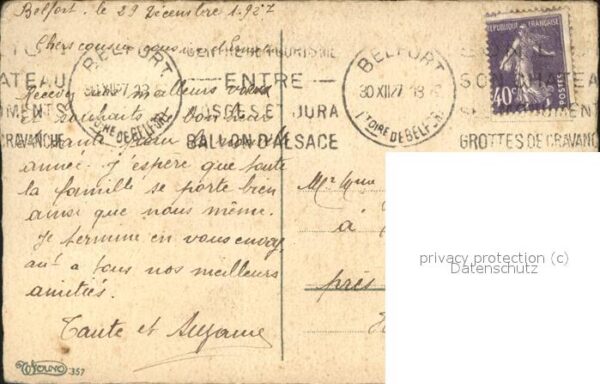 Belfort. le 29 Décembre 1.927
Chers cousin
RÉPUBLIQUE FRANÇAISE
40c
POSTES
BELFORT
30 XII 27 18
TOIRE DE BELFORT
TOURISME
ENTRE
VOSGES ET JURA
BALLON D'ALSACE
BELFORT
TOIRE DE BELFORT
SON CHATEAU
GROTTES DE CRAVANCHE
ATEAU
MENTS
CRAVANCHE
meilleurs vœux
et souhaits bonheur
santé pour la nouvelle
année. j'espère que toute
la famille se porte bien
ainsi que nous même.
Je termine en vous envoy
ant a tous nos meilleurs
amitiés.
Tante et Suzanne
Mr
à
près
privacy protection (c)
Datenschutz
357